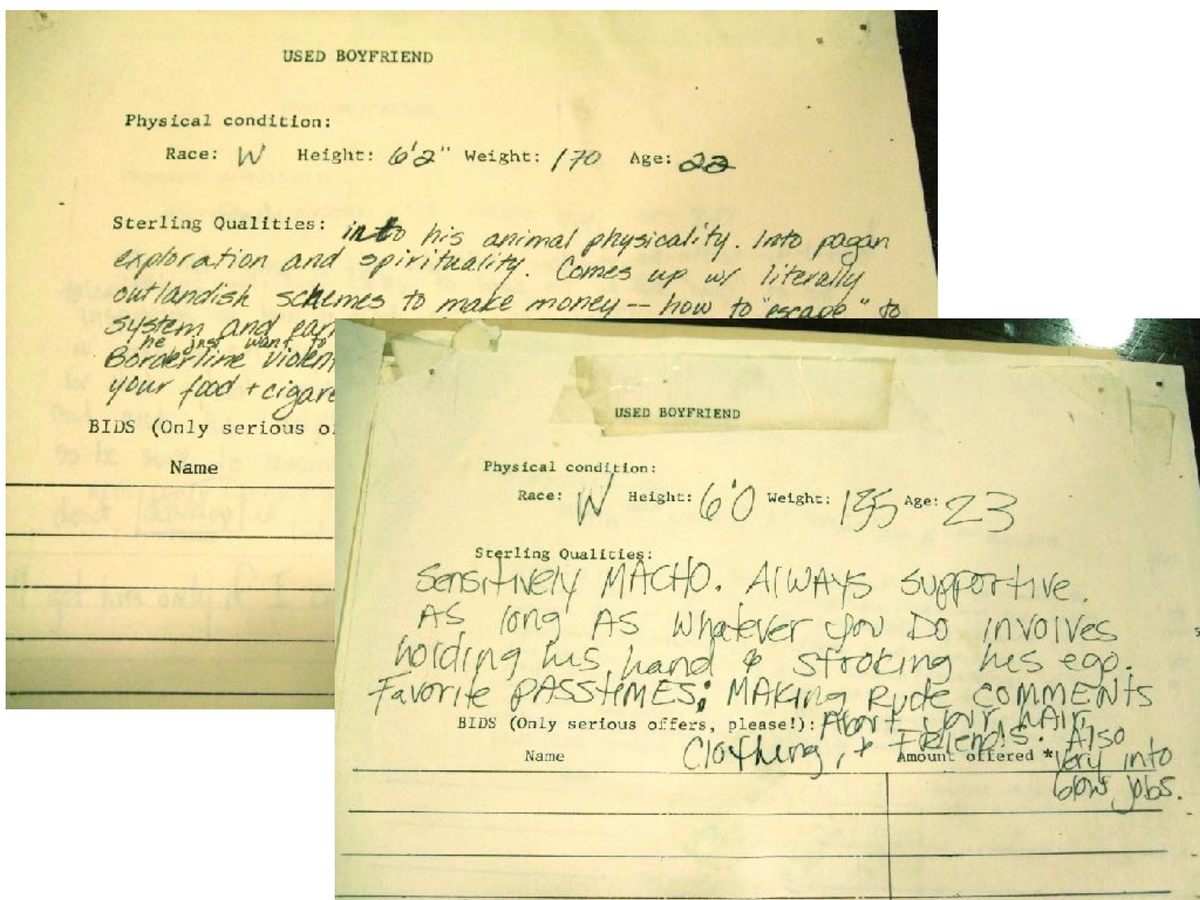 USED BOYFRIEND
Physical condition:
Race: W Height: 6'2" Weight: 170 Age: 22
Sterling Qualities: into his animal physicality. Into pagan
exploration and spirituality. Comes up w/ literally
outlandish schemes to make money -- how to "escape" to
system and
he just want to
Borderline
your food +
BIDS (Only serious
Name
USED BOYFRIEND
Physical condition:
Race: W Height: 6'0 Weight: 155 Age: 23
Sterling Qualities:
Sensitively MACHO. Always supportive.
As long As whatever you Do involves
holding his hand & stroking his ego.
Favorite PASStIMES: MAKing Rude COMMENTS
BIDS (Only serious offers, please!): About your hAir,
Clothing, + FRIENDS. Also
Name Amount offered * Very into
blow jobs.